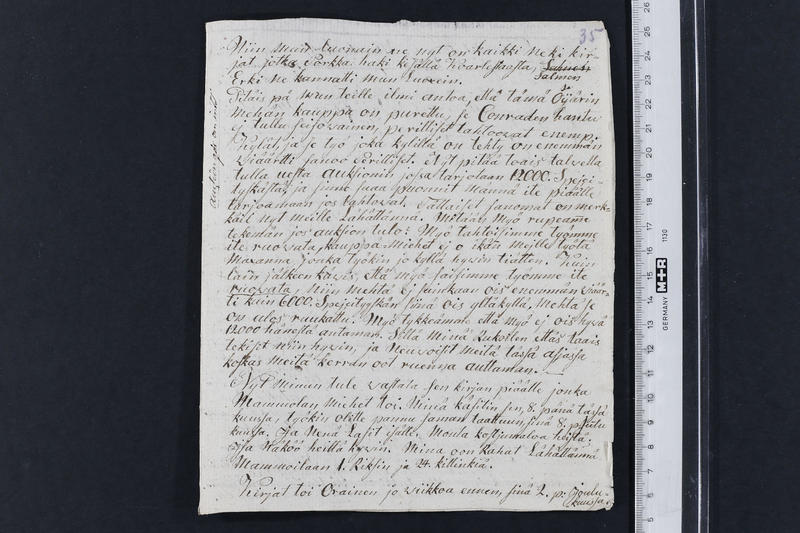 35
Niin muin luonain ne nyt on kaikki neki kir-
jat jotka Porkka haki kesällä Kaarlestasta,
Erki ne kannatti mun Salmen
Pitäis pä mun teille ilmi antoa, että tässä Öyärin
mehän kauppa on purettu, se Conraden hanku
ej tullu seisowainen, perilliset tahtoowat enempi.
Kylät, ja se työ joka kylillä on tehty on enemmän
wiäärtti sanoo Perilliset. Nyt pitää taais talvella
tulla uesta auksionit, jossa tarjotaan 12000. Speji-
tyskästä, ja sinne suaa puonnit männä ite piäälle
tarjoamaan jos tahtowat. Tällaiset sanomat on merk-
käil nyt meille Lähättännä. Mitään Myö rupeame
tekemän jos auksion tulo? Myö tahtoisimme työmme
ite ruowata, kauppa Miehet ej o ikän meille työtä
Maxanna jonka työkin jo kyllä hywin tiätten. Kuin
tään jälkeen käwis, että myö saisimme työmme ite
ruowata, niin mehtä ej suinkaan ois enemmän wiäär-
ti kuin 6000. Spejeityskän, siinä ois yltäkyllä, Mehtä se
on ulos ruukattu. Myö tykkeämme että myö ej ois hywä
12000 hänestä antaman. Sitä Minä Lukoilen ettäs taais
tekisit niin hywin, ja Neuwoisit meitä tässä asjassa
koskas meitä kerran oot ruenna auttaman.
Nyt Minun tule wastata sen kirjan piäälle jonka
Mammolan Miehet toi. Minä käsitin sen, 8. pänä tässä
kuussa, työkin olette panna saman taattuun, sinä 8. Joulu
kuussa. Ja Nenä Lasit isälle. Monta kostjumaloa heistä.
Isä Näköö heillä hywin. Mina oon kahat Lähättännä
Mammoilaan 1. Riksin ja 24. killinkiä.
Kirjat toi Oräinen jo wiikkoa ennen, sinä 2. p: Joulu-
kuussa.